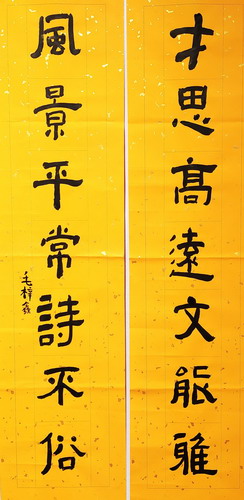 才思高遠文能雅
風景平常詩不俗
毛梓鑫